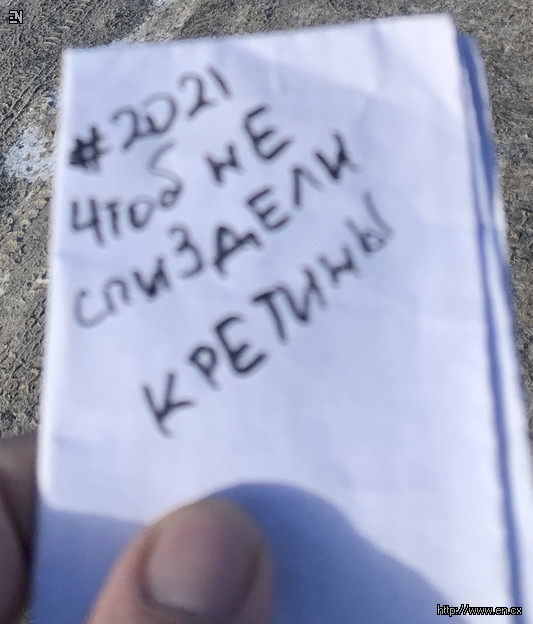 EN
#2021
Чтоб НЕ
СПИЗДЕЛИ
КРЕТИНЫ
http://www.en.cx